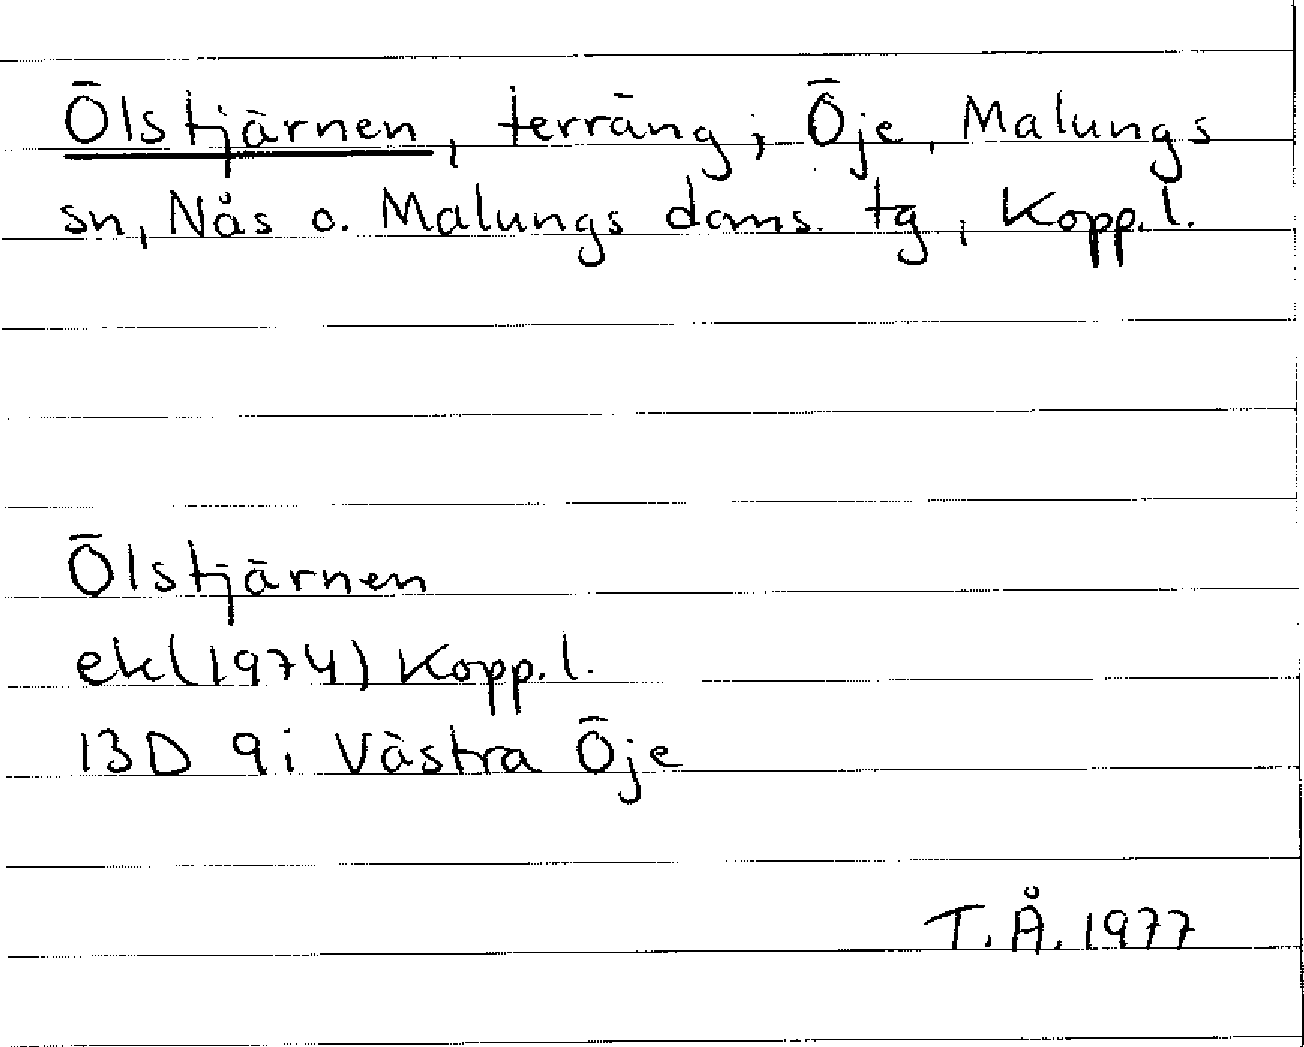 Ölstjärnen, terräng; Öje, Malungs
sn, Nås o. Malungs doms. tg, Kopp. l.
Ölstjärnen
ek(1974) Kopp. l.
13D 9i Västra Öje
T. Å. 1977